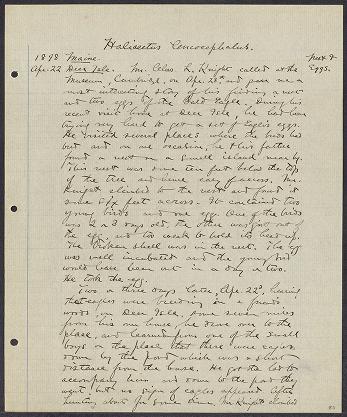 Haliaeetus leucocephalus.
1898 Maine. Nest &
Apr. 22 Deer Isle. Mr. Chas. L. Knight called at the Eggs.
Museum, Cambridge, on Apr. 28th and gave me a
most interesting story of his finding a nest
and two eggs of the Bald Eagle. During his
recent visit home at Deer Isle, he had been
trying very hard to get a set of Eagle's eggs.
He visited several places where the birds had
but and on one occasion, he & his father
found a nest on a small island near by.
This nest was some ten feet below the top
of the tree and was easy of access. Mr.
Knight climbed to the nest and found it
some feet across. It contained two
young birds and one egg. One of the birds
was 2 or 3 days old, the other was just out of
the egg and too weak to hold its head up.
The broken shell was in the nest. The egg
was well incubated and the young bird
would have been out in a day or two.
He took the egg.
Two or three days later, Apr. 22d, hearing
that eagles were breeding in a
woods on Deer Isle, some seven miles
from his own house, he drove over to the
place, and learned from one of the small
boys on the place that there were eagles
down by the pond, which was a short
distance from the house. He got the lad to
accompany him, and down to the pond they
went, but no sign of eagles appeared. After
hunting about for some time, Mr. Knight climbed